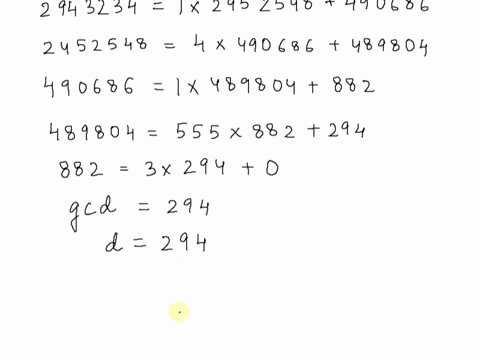 2943234 = 1 x 2452548 + 490686
2452548 = 4 x 490686 + 489804
490686 = 1 x 489804 + 882
489804 = 555 x 882 + 294
882 = 3 x 294 + 0
gcd = 294
d = 294